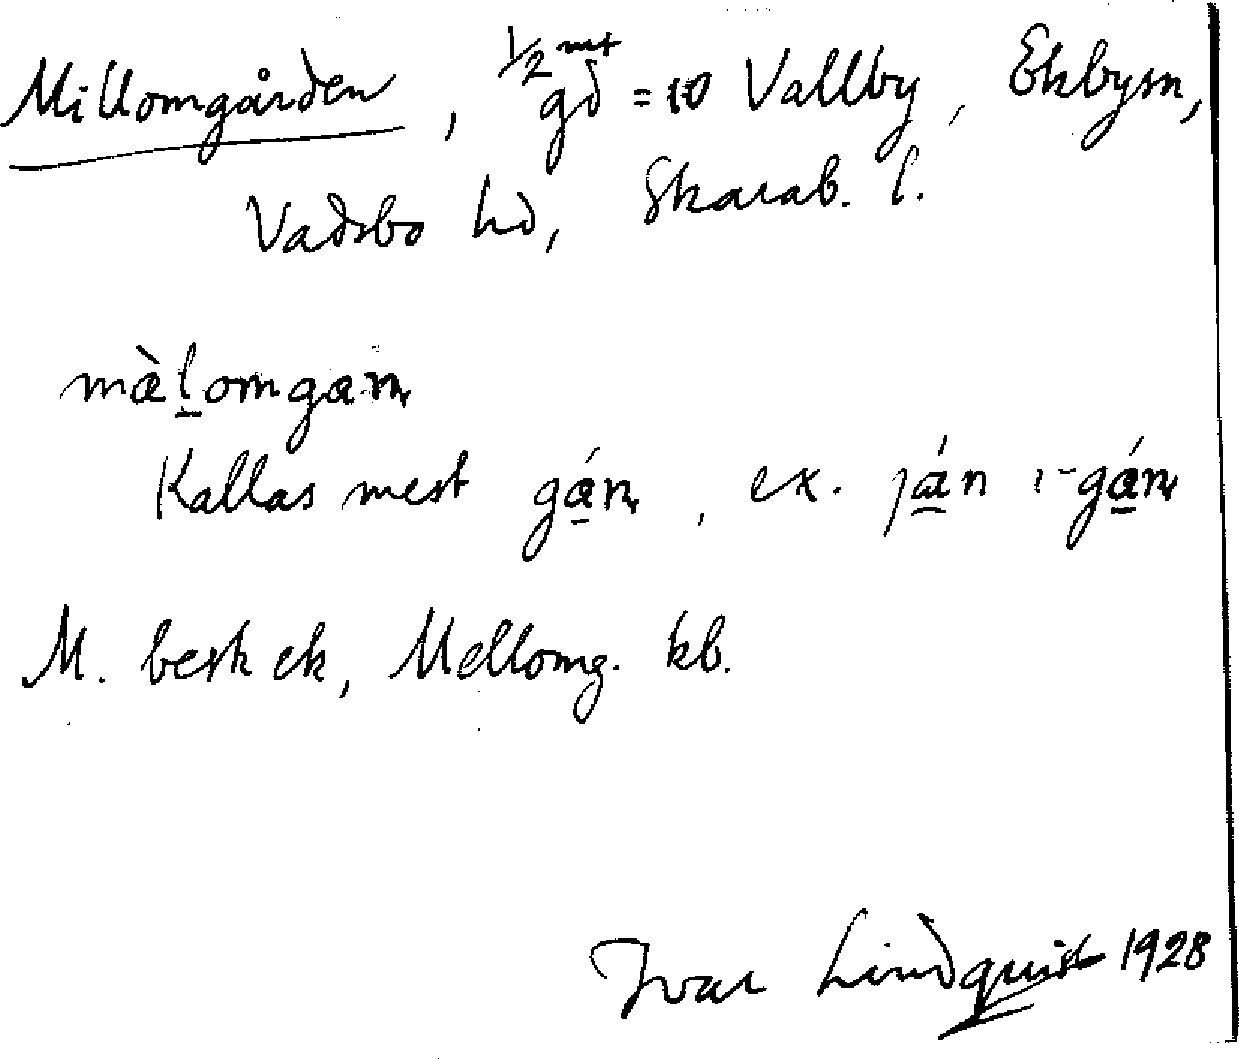 Millomgården, 1/2 mt gd = 10 Vallby, Ekbysn,
Vadsbo hd, Skarab. l.
mæ̀l̠omgan
Kallas mest gá̠n, ex. já̠n i-gá̠n
M. besk ek, Mellomg. kb.
Ivar Lindquist 1928